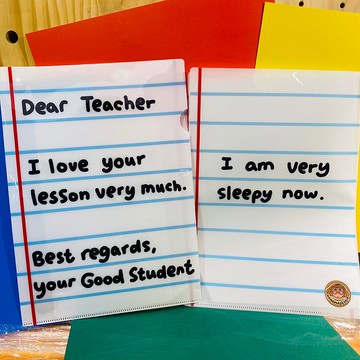 Dear Teacher
I love your
lesson very much.
Best regards,
your Good Student
I am very
sleepy now.